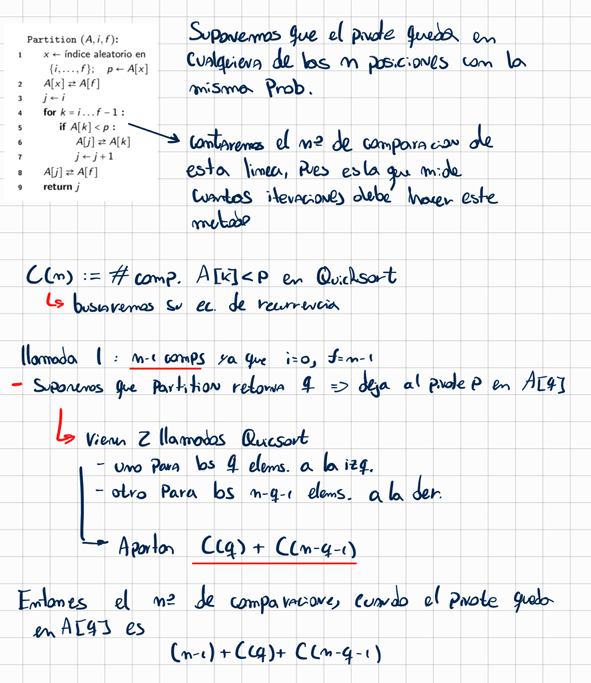 Partition (A, i, f):
1 x ← índice aleatorio en
{i, ..., f}; p ← A[x]
2 A[x] ⇄ A[f]
3 j ← i
4 for k = i ... f − 1 :
5 if A[k] < p :
6 A[j] ⇄ A[k]
7 j ← j + 1
8 A[j] ⇄ A[f]
9 return j
Suponemos que el pivote queda en
cualquiera de las n posiciones con la
misma Prob.
contaremos el nº de comparacion de
esta linea, pues es la que mide
cuantas iteraciones debe hacer este
metodo
C(n) := # comp. A[k]<p en Quicksort
↳ buscaremos su ec. de recurrencia
llamada 1 : n-1 comps ya que i=0, f=n-1
- Suponemos que Partition retorna q => deja al pivote p en A[q]
↳ Vienen 2 llamados Quicsort
- uno para los q elems. a la izq.
- otro para los n-q-1 elems. a la der.
Aportan C(q) + C(n-q-1)
Entonces el nº de comparaciones, cuando el pivote queda
en A[q] es
(n-1) + C(q) + C(n-q-1)